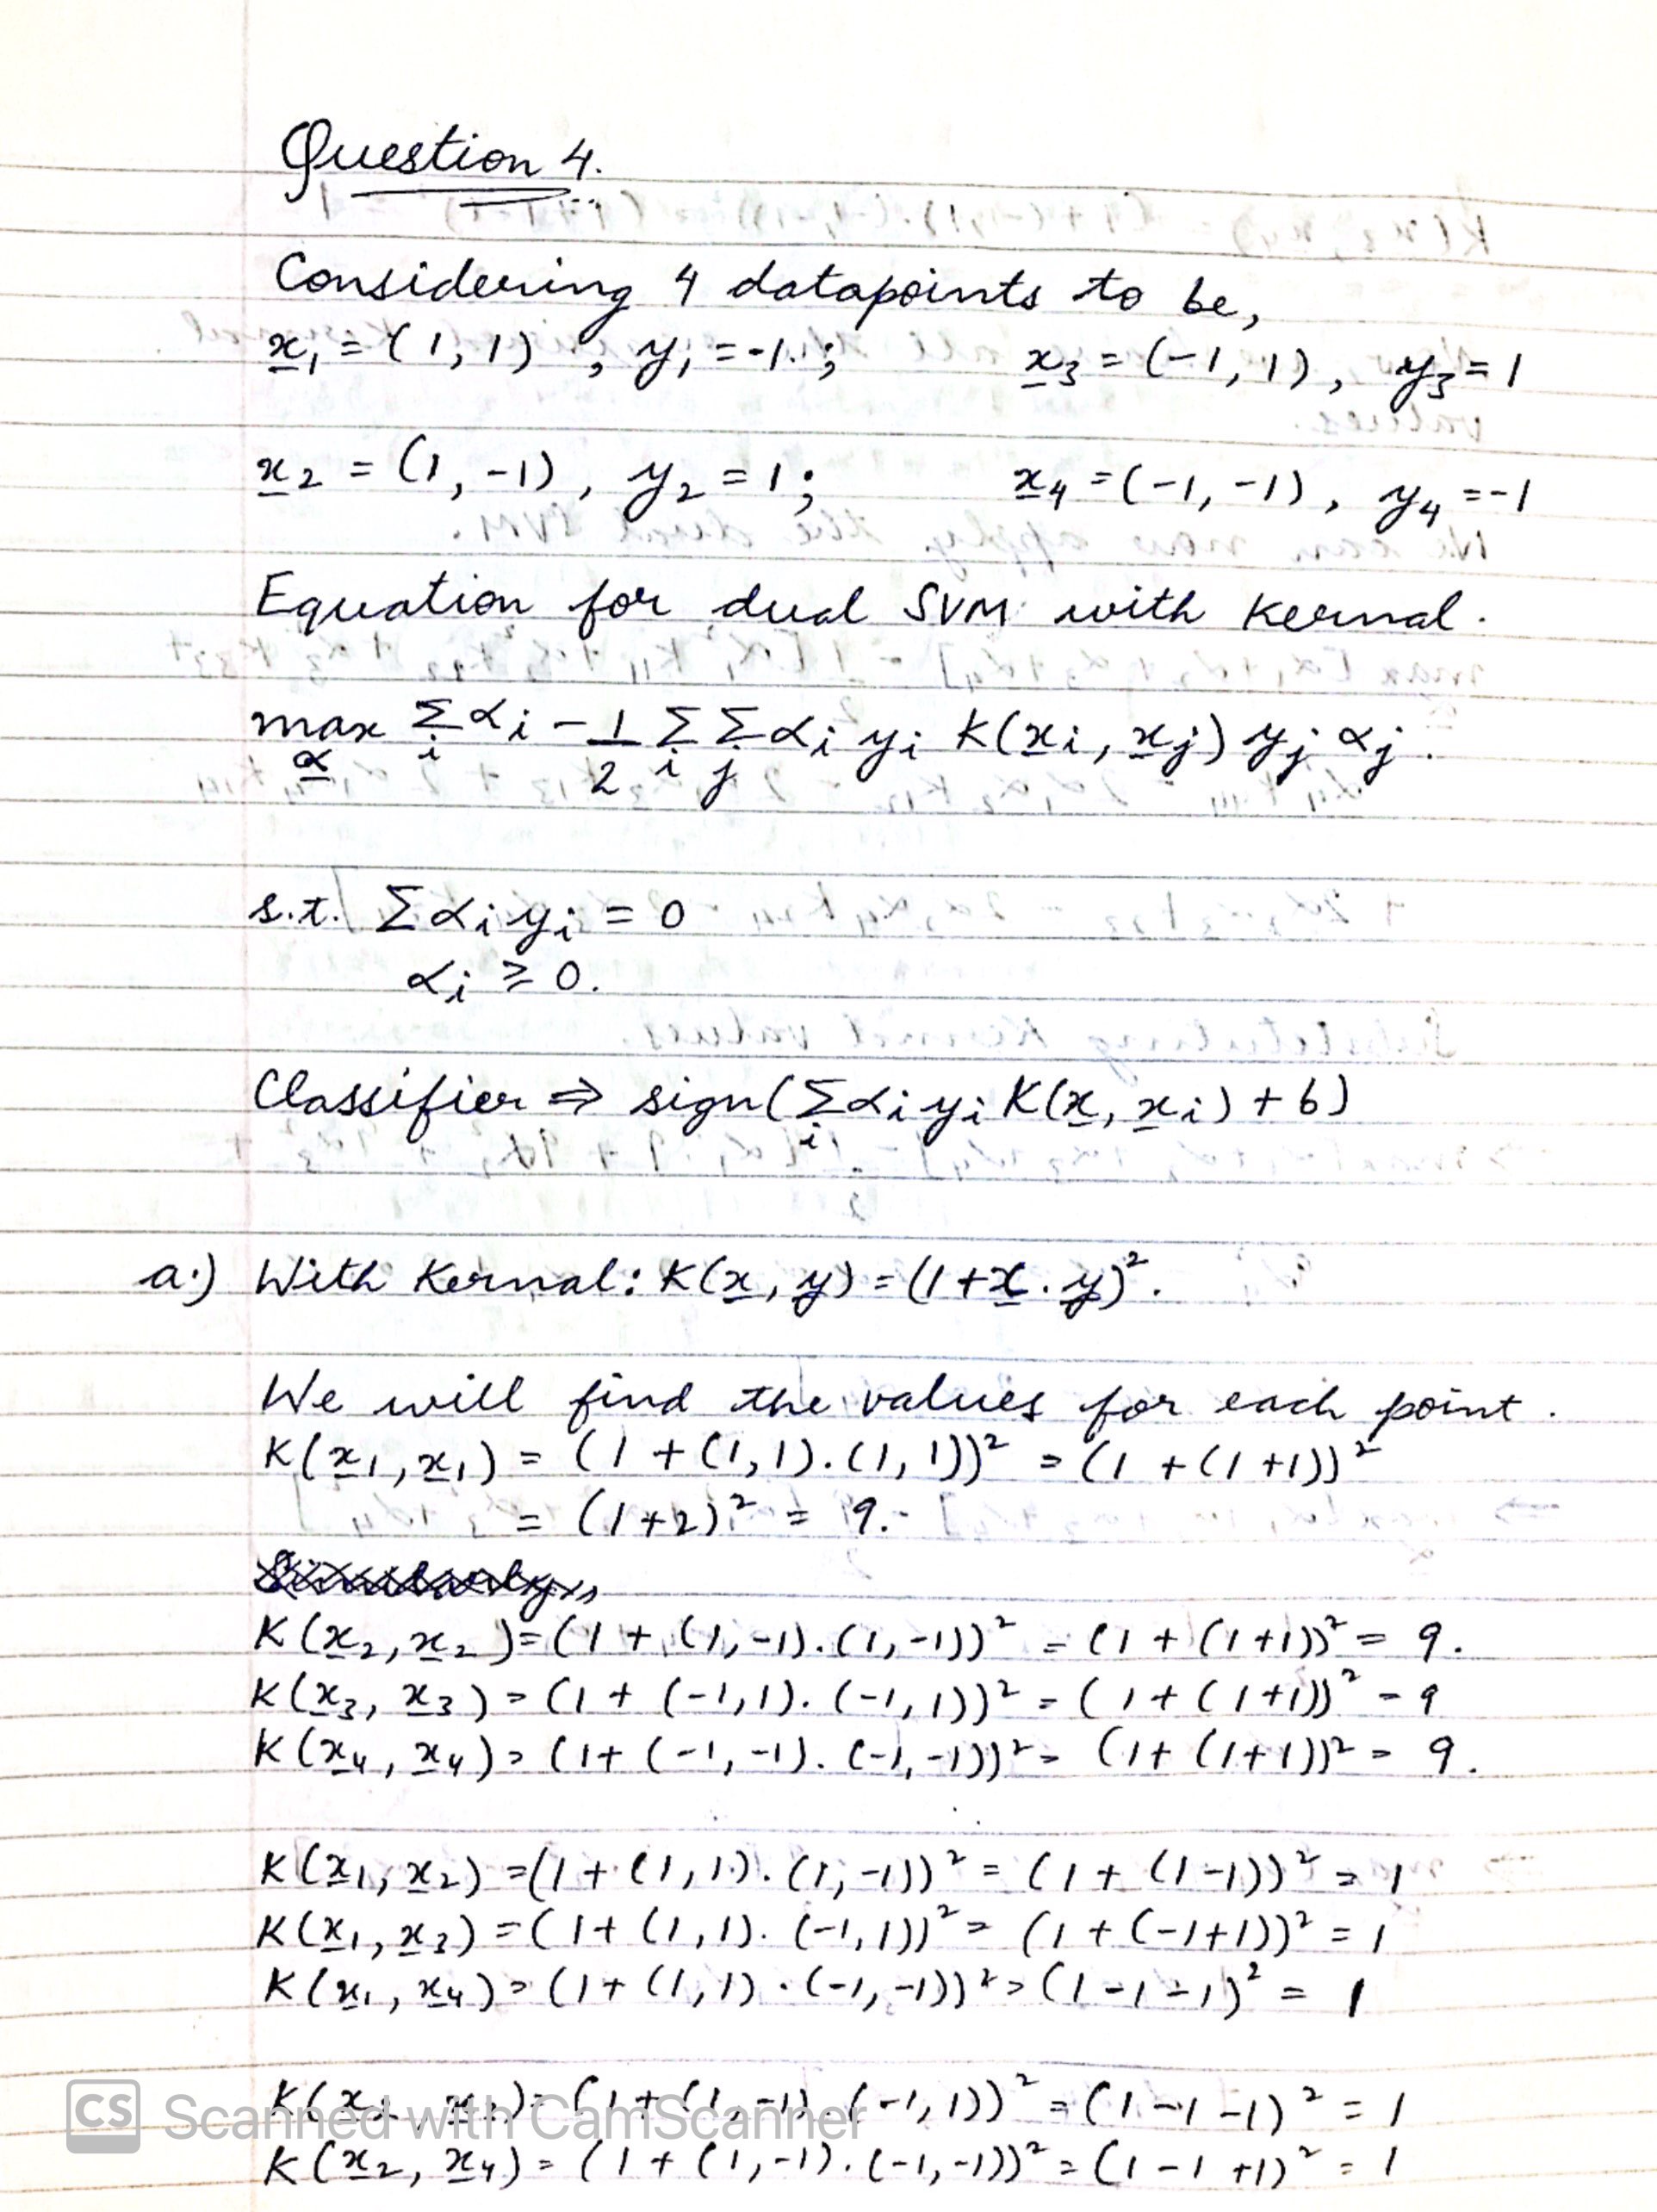 Question 4.
Considering 4 datapoints to be,
x₁ = (1, 1) , y₁ = -1. ; x₃ = (-1, 1), y₃ = 1
x₂ = (1, -1) , y₂ = 1 ; x₄ = (-1, -1) , y₄ = -1
Equation for dual SVM with Kernal.
max_α Σ_i αi - 1/2 Σ_i Σ_j αi yi K(xi, xj) yj αj .
s.t. Σ αi yi = 0
αi ≥ 0.
Classifier ⇒ sign(Σ_i αi yi K(x, xi) + b)
a.) With Kernal: K(x, y) = (1 + x . y)².
We will find the values for each point .
K(x₁, x₁) = (1 + (1, 1). (1, 1))² = (1 + (1 + 1))²
= (1+2)² = 9.
K(x₂, x₂) = (1 + (1, -1). (1, -1))² = (1 + (1+1))² = 9.
K(x₃, x₃) = (1 + (-1, 1). (-1, 1))² = (1 + (1+1))² = 9
K(x₄, x₄) = (1+ (-1, -1). (-1, -1))² = (1+ (1+1))² = 9.
K(x₁, x₂) = (1 + (1, 1). (1, -1))² = (1 + (1-1))² = 1
K(x₁, x₃) = (1+ (1, 1). (-1, 1))² = (1 + (-1+1))² = 1
K(x₁, x₄) = (1+ (1, 1) . (-1, -1))² = (1 -1 -1)² = 1
K(x₂, x₃) = (1 + (1, -1). (-1, 1))² = (1 -1 -1)² = 1
K(x₂, x₄) = (1 + (1, -1). (-1, -1))² = (1 -1 +1)² = 1
CS Scanned with CamScanner